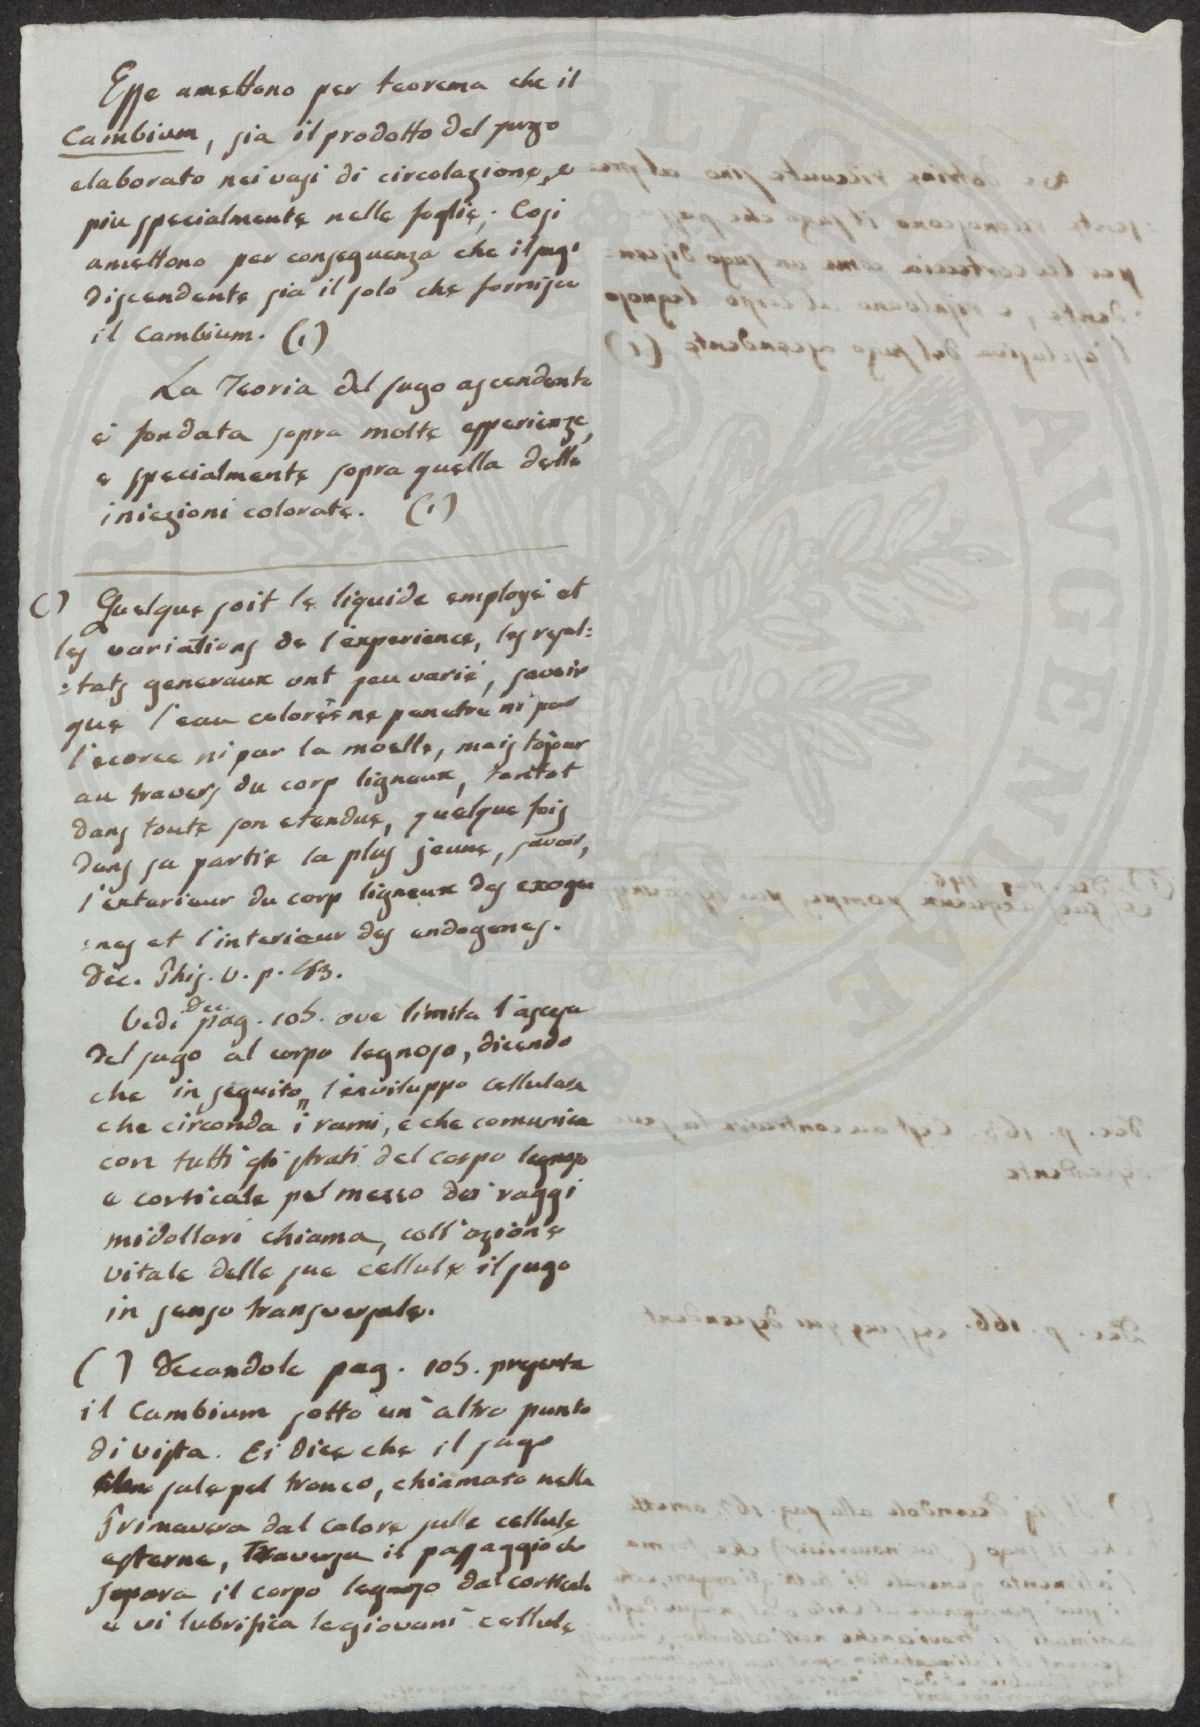 Esse amettono per teorema che il
Cambium, sia il prodotto del sugo
elaborato nei vasi di circolazione, e
piu specialmente nelle foglie; Cosi
amettono per conseguenza che il sugo
discendente sia il solo che fornisca
il Cambium. (1)
La Teoria del sugo ascendente
e' fondata sopra molte esperienze,
e specialmente sopra quella delle
iniezioni colorate. (1)
() Quelque soit le liquide employé et
les variations de l'experience, les resul=
=tats generaux ont peu varié, savoir
que l'eau colorée ne penetre ni par
l'ecorce ni par la moelle, mais tojour
au travers du corp ligneux, tantot
dans toute son etendue, quelque fois
dans sa partie la plus jeune, savoir,
l'exterieur du corp ligneux des exoge
=nes et l'interieur des endogenes.
Dec. Phis. V. p. 83.
Vedi Dec. pag. 105. ove limita l'ascesa
del sugo al corpo legnoso, dicendo
che in seguito "l'inviluppo cellulare
che circonda i rami, e che comunica
con tutti gli strati del corpo legnoso
e corticale pel mezzo dei raggi
midollari chiama, coll'azione
vitale delle sue cellule il sugo
in senso transversale.
() Decandole pag. 105. presenta
il Cambium sotto un'altro punto
di vista. Ei dice che il sugo
sale pel tronco, chiamato nella
Primavera dal calore sulle cellule
esterne, Traversa il passaggio che
separa il corpo legnoso dal corticale
e vi lubrifica le giovani cellule